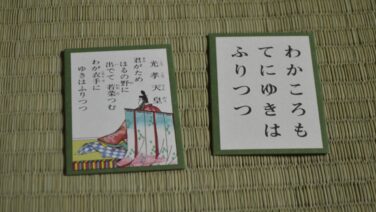 光孝天皇
君がため
はるの野に
出でて若菜つむ
わが衣手に
ゆきはふりつつ
わかころも
てにゆきは
ふりつつ